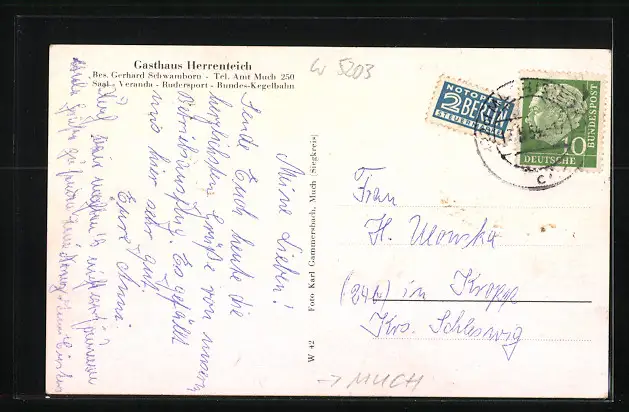 Gasthaus Herrenteich
Bes. Gerhard Schwamborn - Tel. Amt Much 250
Saal - Veranda - Rudersport - Bundes-Kegelbahn
W 5203
Meine Lieben!
Sende Euch heute die
herzlichsten Grüße von unserm
Betriebsausflug. Es gefällt
uns hier sehr gut.
Eure Anni.
Foto Karl Gammersbach, Much (Siegkreis)
W 42
NOTOPFER
2 BERLIN
STEUERMARKE
10
DEUTSCHE
BUNDESPOST
Frau
H. Ulowska
(24b) in Kropp
Krs. Schleswig
→ MUCH